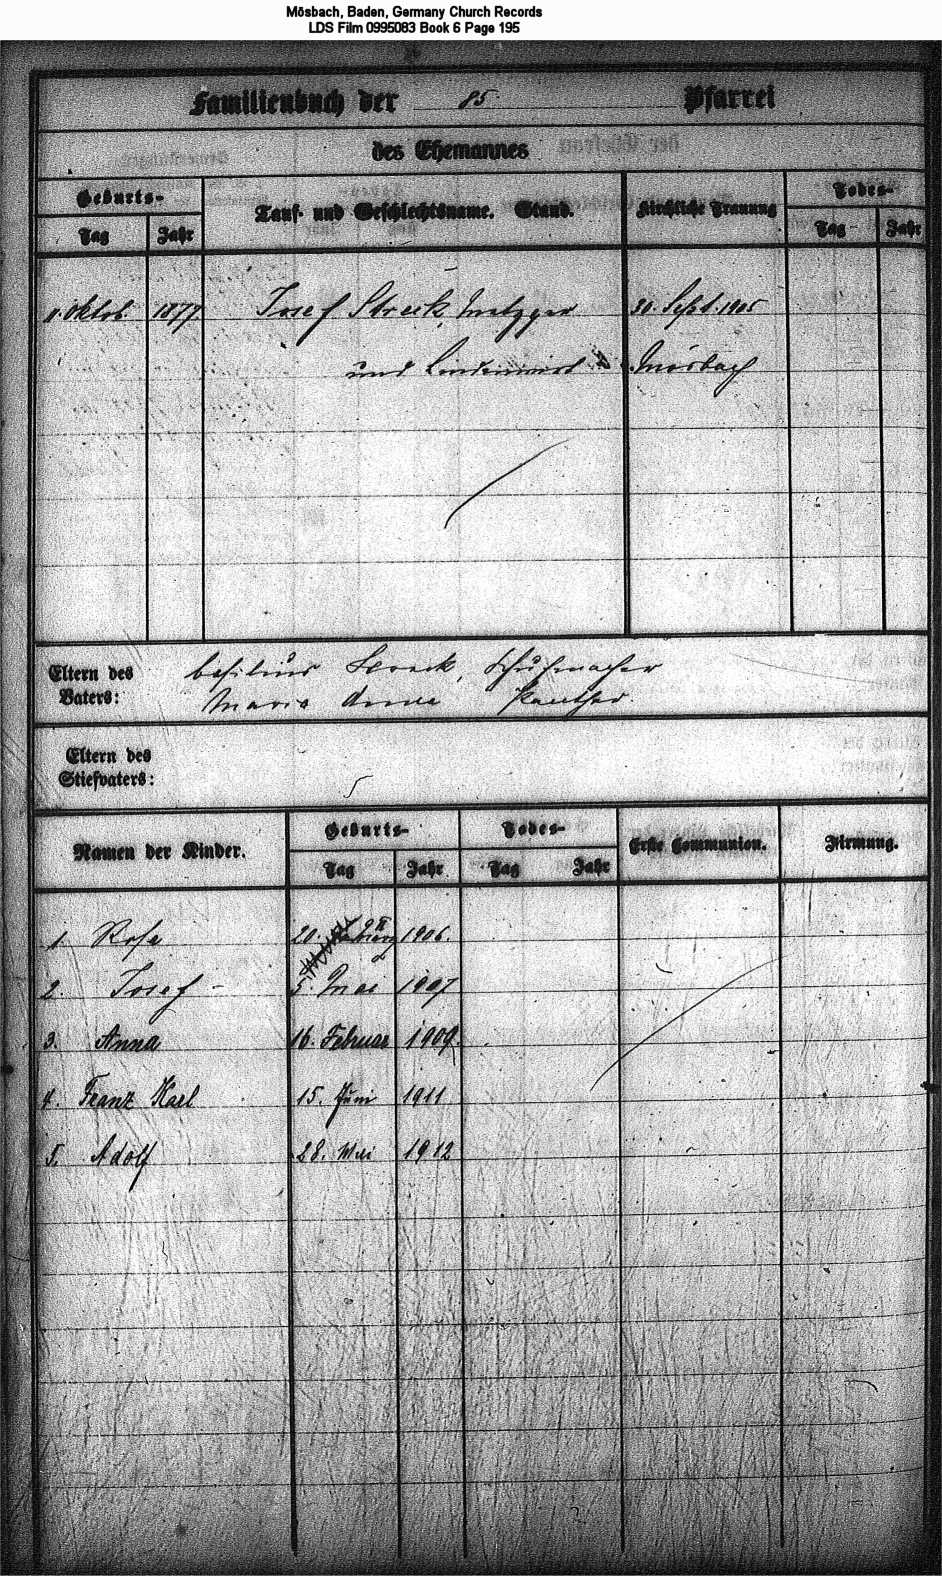 Mösbach, Baden, Germany Church Records
LDS Film 0995083 Book 6 Page 195
Familienbuch der 85 Pfarrei
des Ehemannes
Geburts-
Tauf- und Geschlechtsname. Stand.
Kirchliche Trauung
Todes-
Tag Jahr
Tag Jahr
11. Oktob. 1877. Josef Streck, Metzger 30. Sept. 1905
und Lindenwirt Mösbach
Eltern des Vaters:
Basilius Streck, Schuhmacher
Maria Anna Panther.
Eltern des Stiefvaters:
Namen der Kinder.
Geburts-
Todes-
Erste Communion.
Firmung.
Tag Jahr
Tag Jahr
1. Rosa 20. 1906.
2. Josef 5. Mai 1907
3. Anna 16. Februar 1909.
4. Franz Karl 15. Juni 1911
5. Adolf 28. Mai 1912